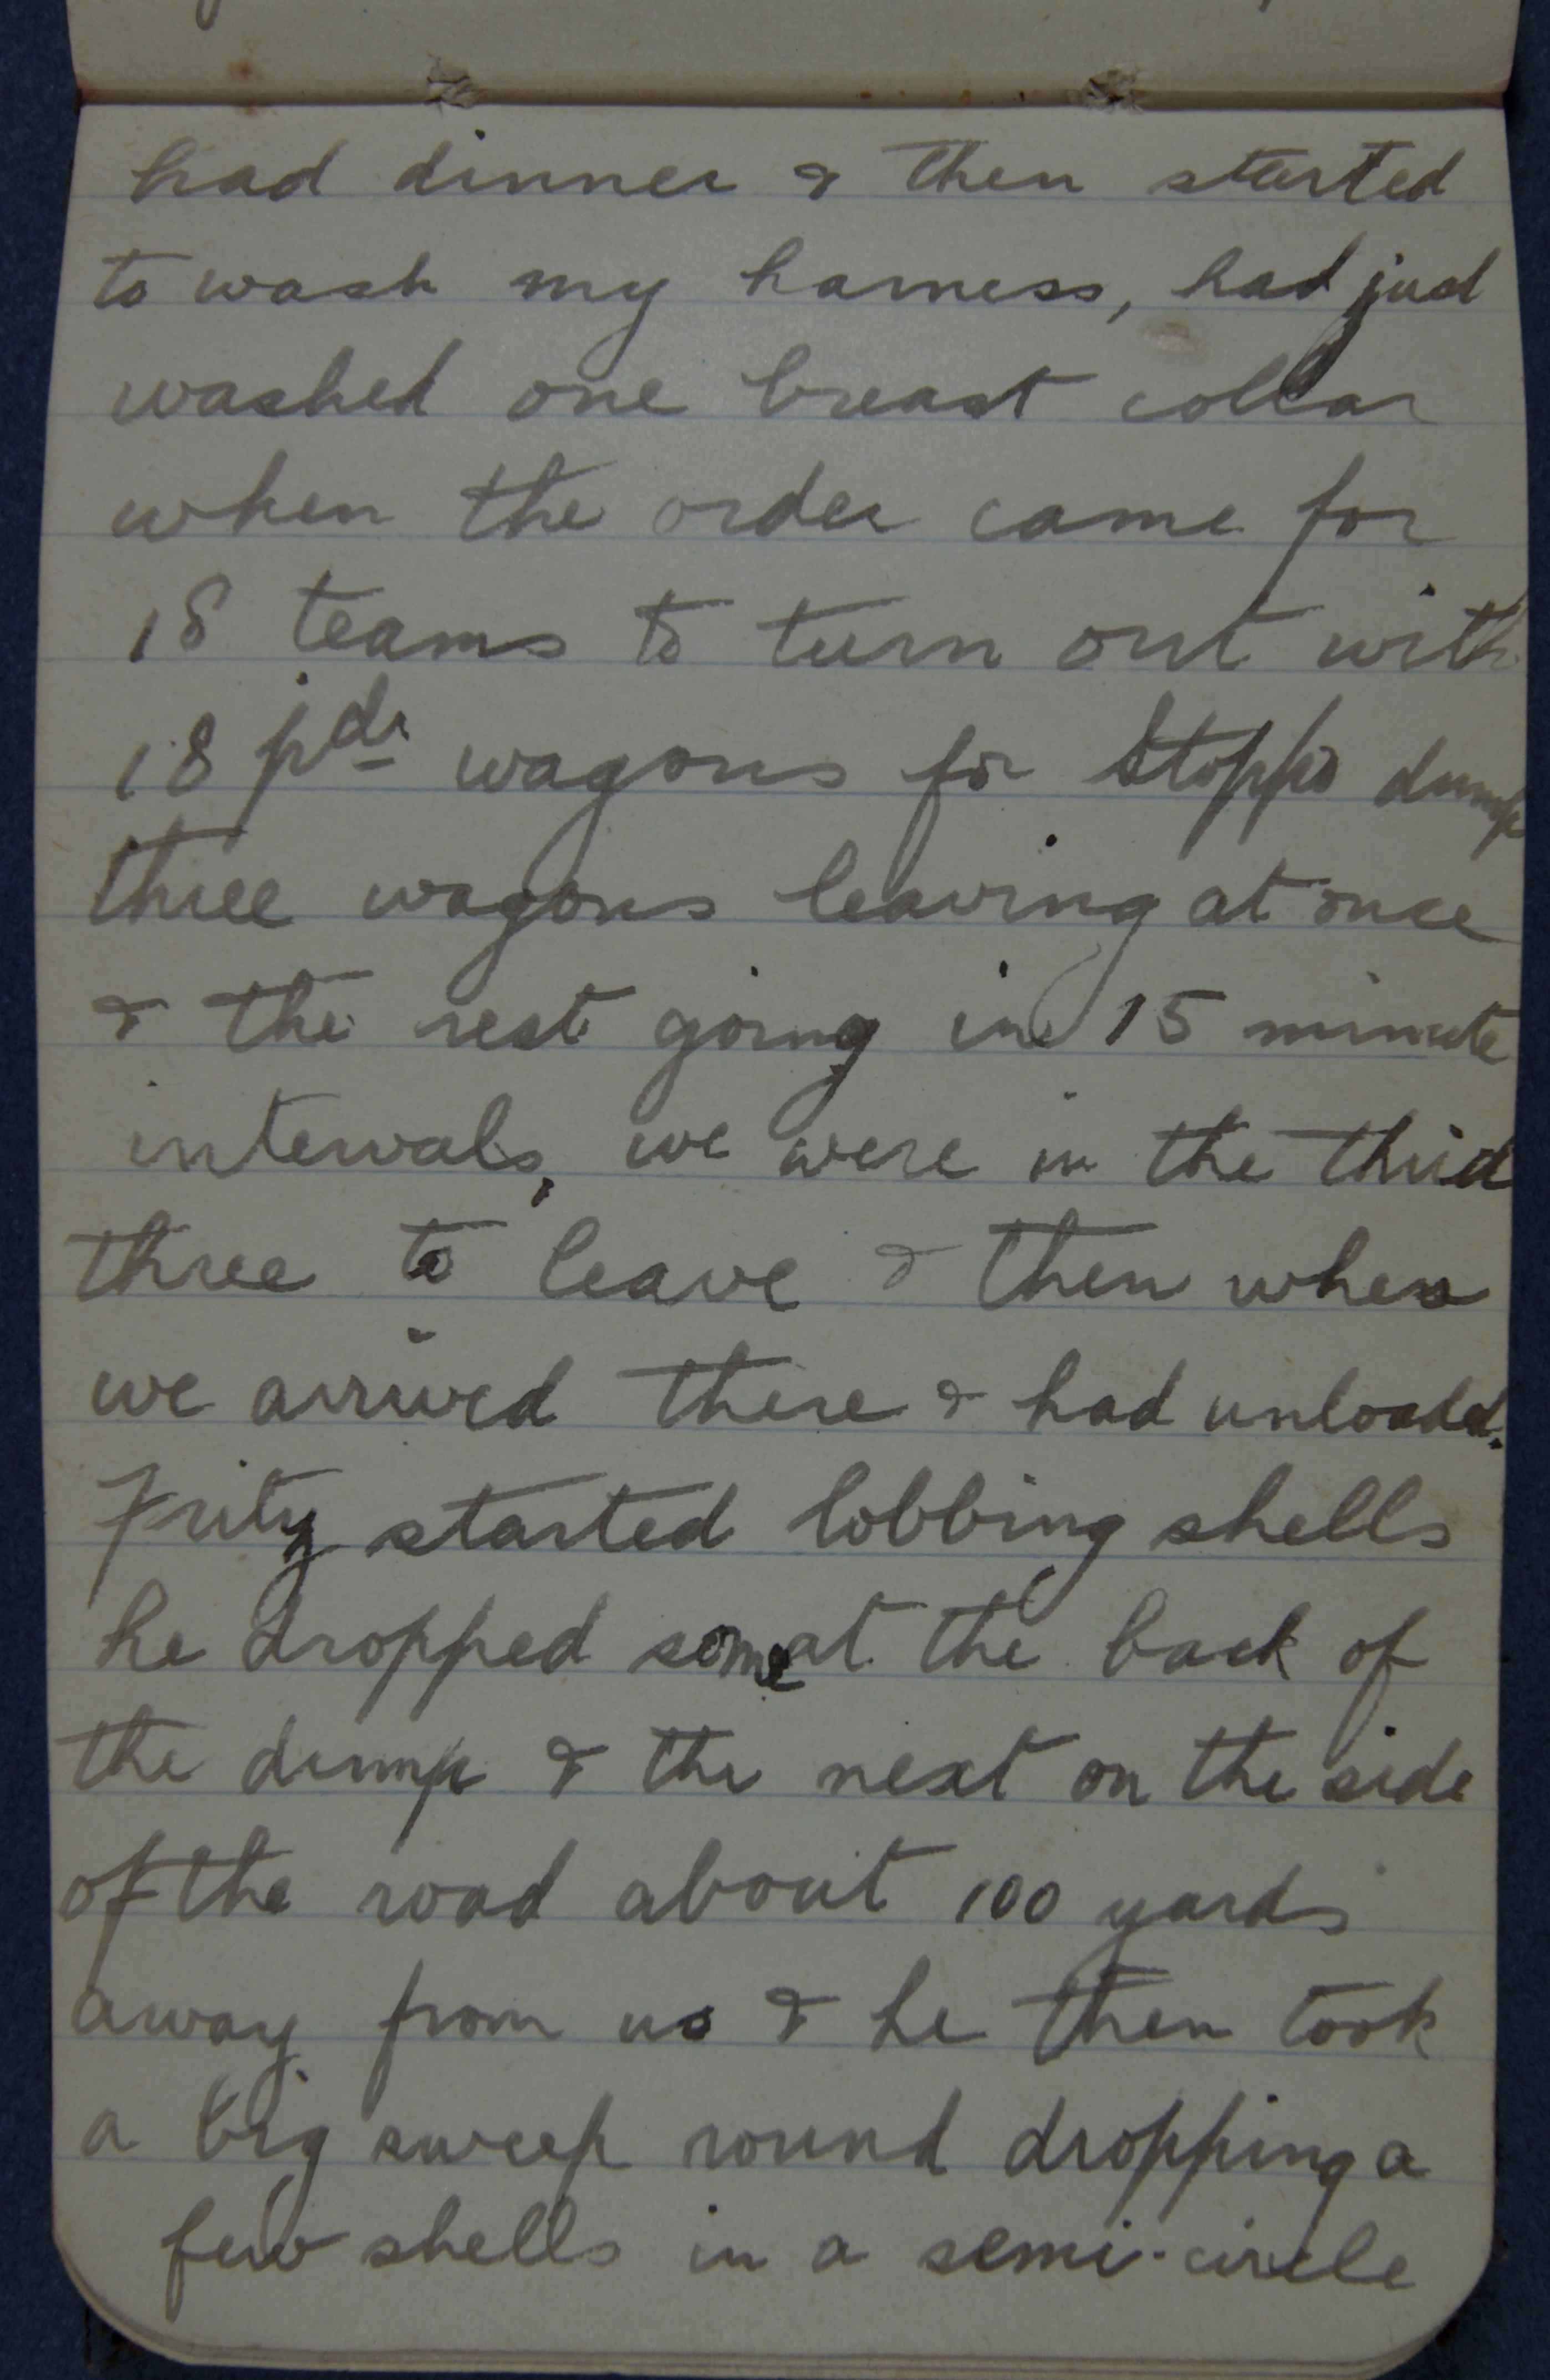 had dinner & then started
to wash my harness, had just
washed one breast collar
when the order came for
18 teams to turn out with
18 pdr wagons for Stopps dump
three wagons leaving at once
& the rest going in 15 minute
intervals, we were in the third
three to leave & then when
we arrived there & had unloaded.
Fritz started lobbing shells
he dropped some at the back of
the dump & the next on the side
of the road about 100 yards
away from us & he then took
a big sweep round dropping a
few shells in a semi-circle